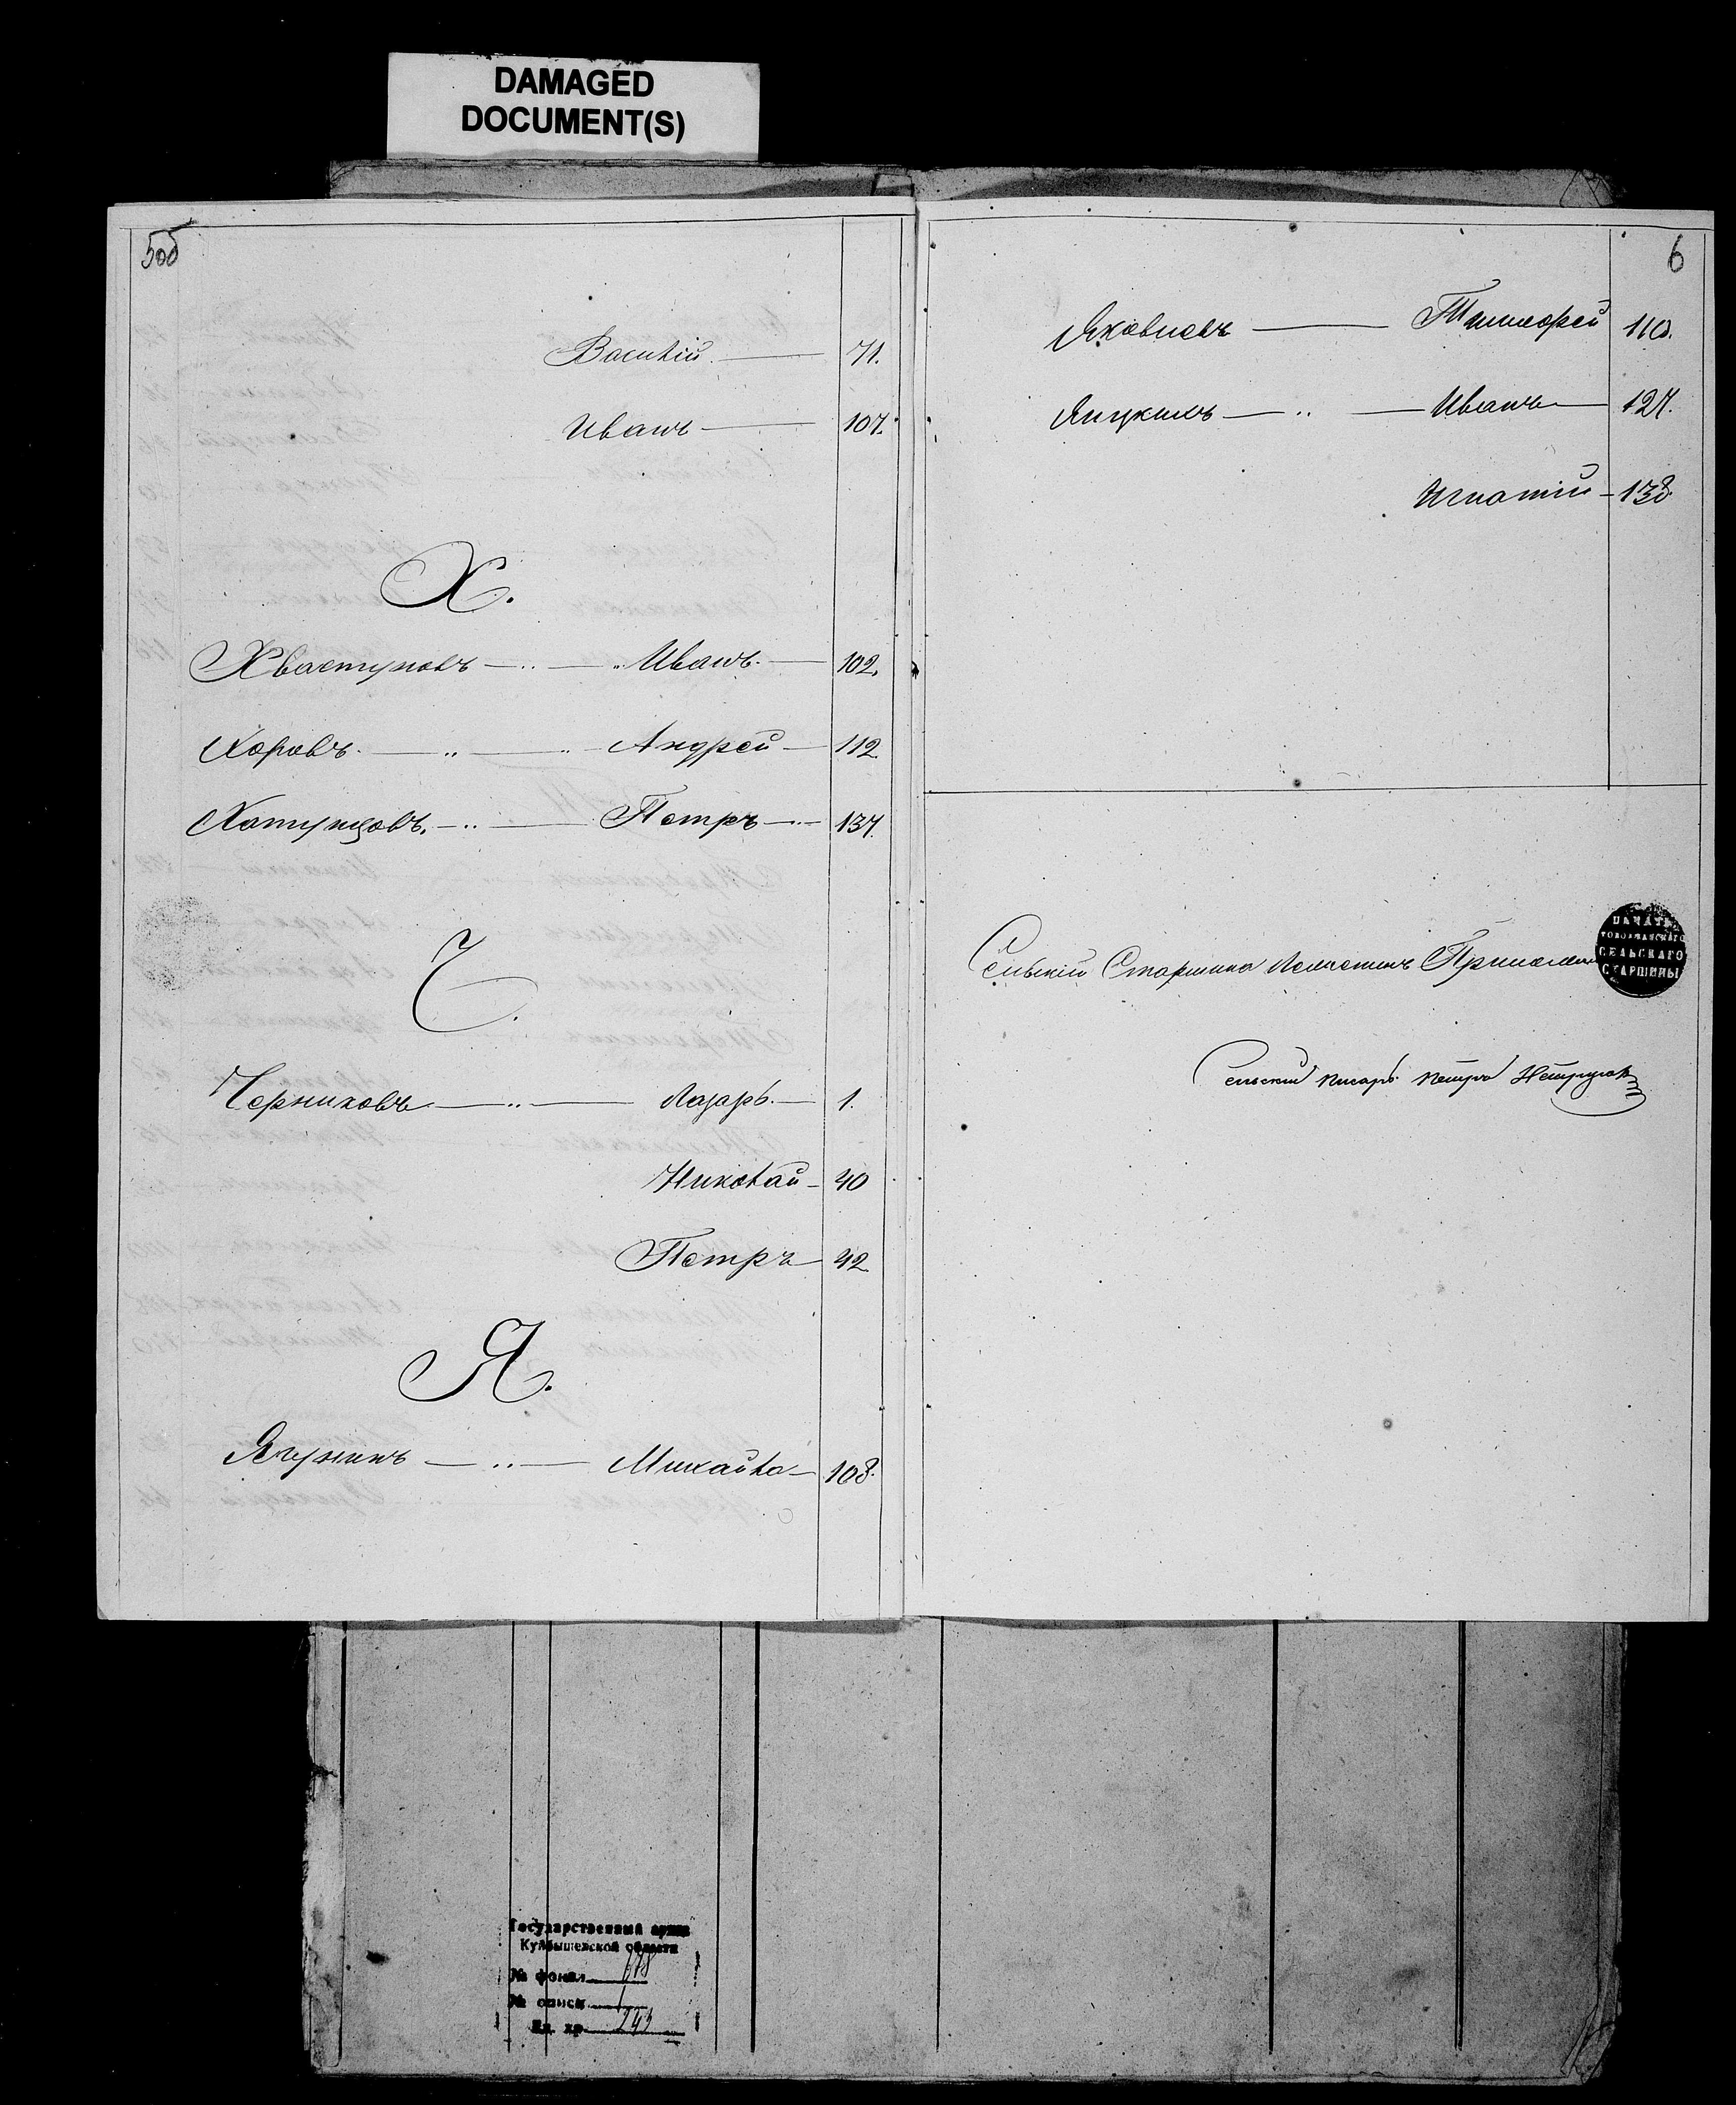 DAMAGED
DOCUMENT(S)
5об
Василій 71.
Иванъ 107.
Х.
Хвастуновъ Иванъ 102.
Хоровъ Андрей 112
Хатунцовъ Петръ 137.
Ч.
Черниковъ Лазарь 1.
Николай 40
Петръ 42
Я.
Ягунинъ Михайла 108.
6
Яковлевъ Тимофей 110.
Яицкихъ Иванъ 127.
Игнатій 138
Сельскій Старшина
ПЕЧАТЬ
СЕЛЬСКАГО
СТАРШИНЫ
Сельский писарь Петръ
Государственный архив
Куйбышевской области
№ фонда 678
№ описи 1
Ед. хр. 243